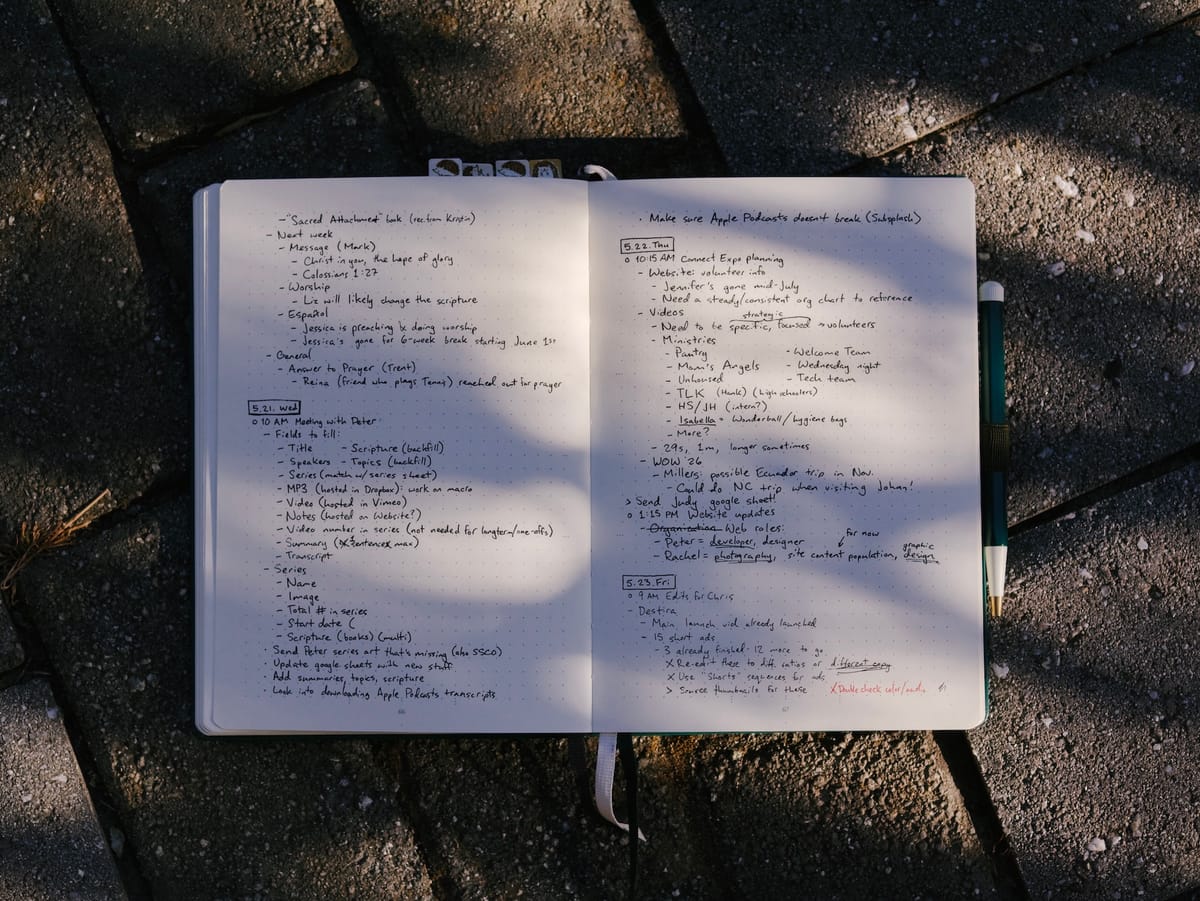 - "Sacred Attachment" book (rec. from Kristin)
- Next week
- Message (Mark)
- Christ in you, the hope of glory
- Colossians 1:27
- Worship
- Liz will likely change the scripture
- Español
- Jessica is preaching & doing worship
- Jessica's gone for 6-week break starting June 1st
- General
- Answer to Prayer (Trent)
- Reina (friend who plays Tennis) reached out for prayer
5.21.Wed
o 10 AM Meeting with Peter:
- Fields to fill:
- Title - Scripture (backfill)
- Speakers - Topics (backfill)
- Series (match w/ series sheet)
- MP3 (hosted in Dropbox): work on macro
- Video (hosted in Vimeo)
- Notes (hosted on Website?)
- Video number in series (not needed for longterm/one-offs)
- Summary (sentence max)
- Transcript
- Series
- Name
- Image
- Total # in series
- Start date (
- Scripture (books) (multi)
· Send Peter series art that's missing (also SSCO)
· Update google sheets with new stuff
· Add summaries, topics, scripture
· Look into downloading Apple Podcasts transcripts
66
· Make sure Apple Podcasts doesn't break (Subsplash)
5.22.Thu
o 10:15 AM Connect Expo planning
- Website: volunteer info
- Jennifer's gone mid-July
- Need a steady/consistent org chart to reference
- Videos
strategic
- Need to be specific, focused → volunteers
- Ministries
- Pantry - Welcome Team
- Mom's Angels - Wednesday night
- Unhoused - Tech team
- TLK (Hank) (high schoolers)
- HS/JH (intern?)
- Isabella = Wonderball/hygiene bags
- More?
- 29s, 1m, longer sometimes
- WOW '26
- Millers: possible Ecuador trip in Nov.
- Could do NC trip when visiting Johan!
> Send Judy google sheet!
o 1:15 PM Website updates
- Organization Web roles:
for now
- Peter = developer, designer
graphic
- Rachel = photography, site content population, design
5.23.Fri
o 9 AM Edits for Chris
- Destira
- Main launch vid already launched
- 15 short ads
- 3 already finished · 12 more to go
X Re-edit these to diff. ratios or different copy
X Use "Shorts" sequences for ads
> Source thumbnails for these X Double check color/audio
67